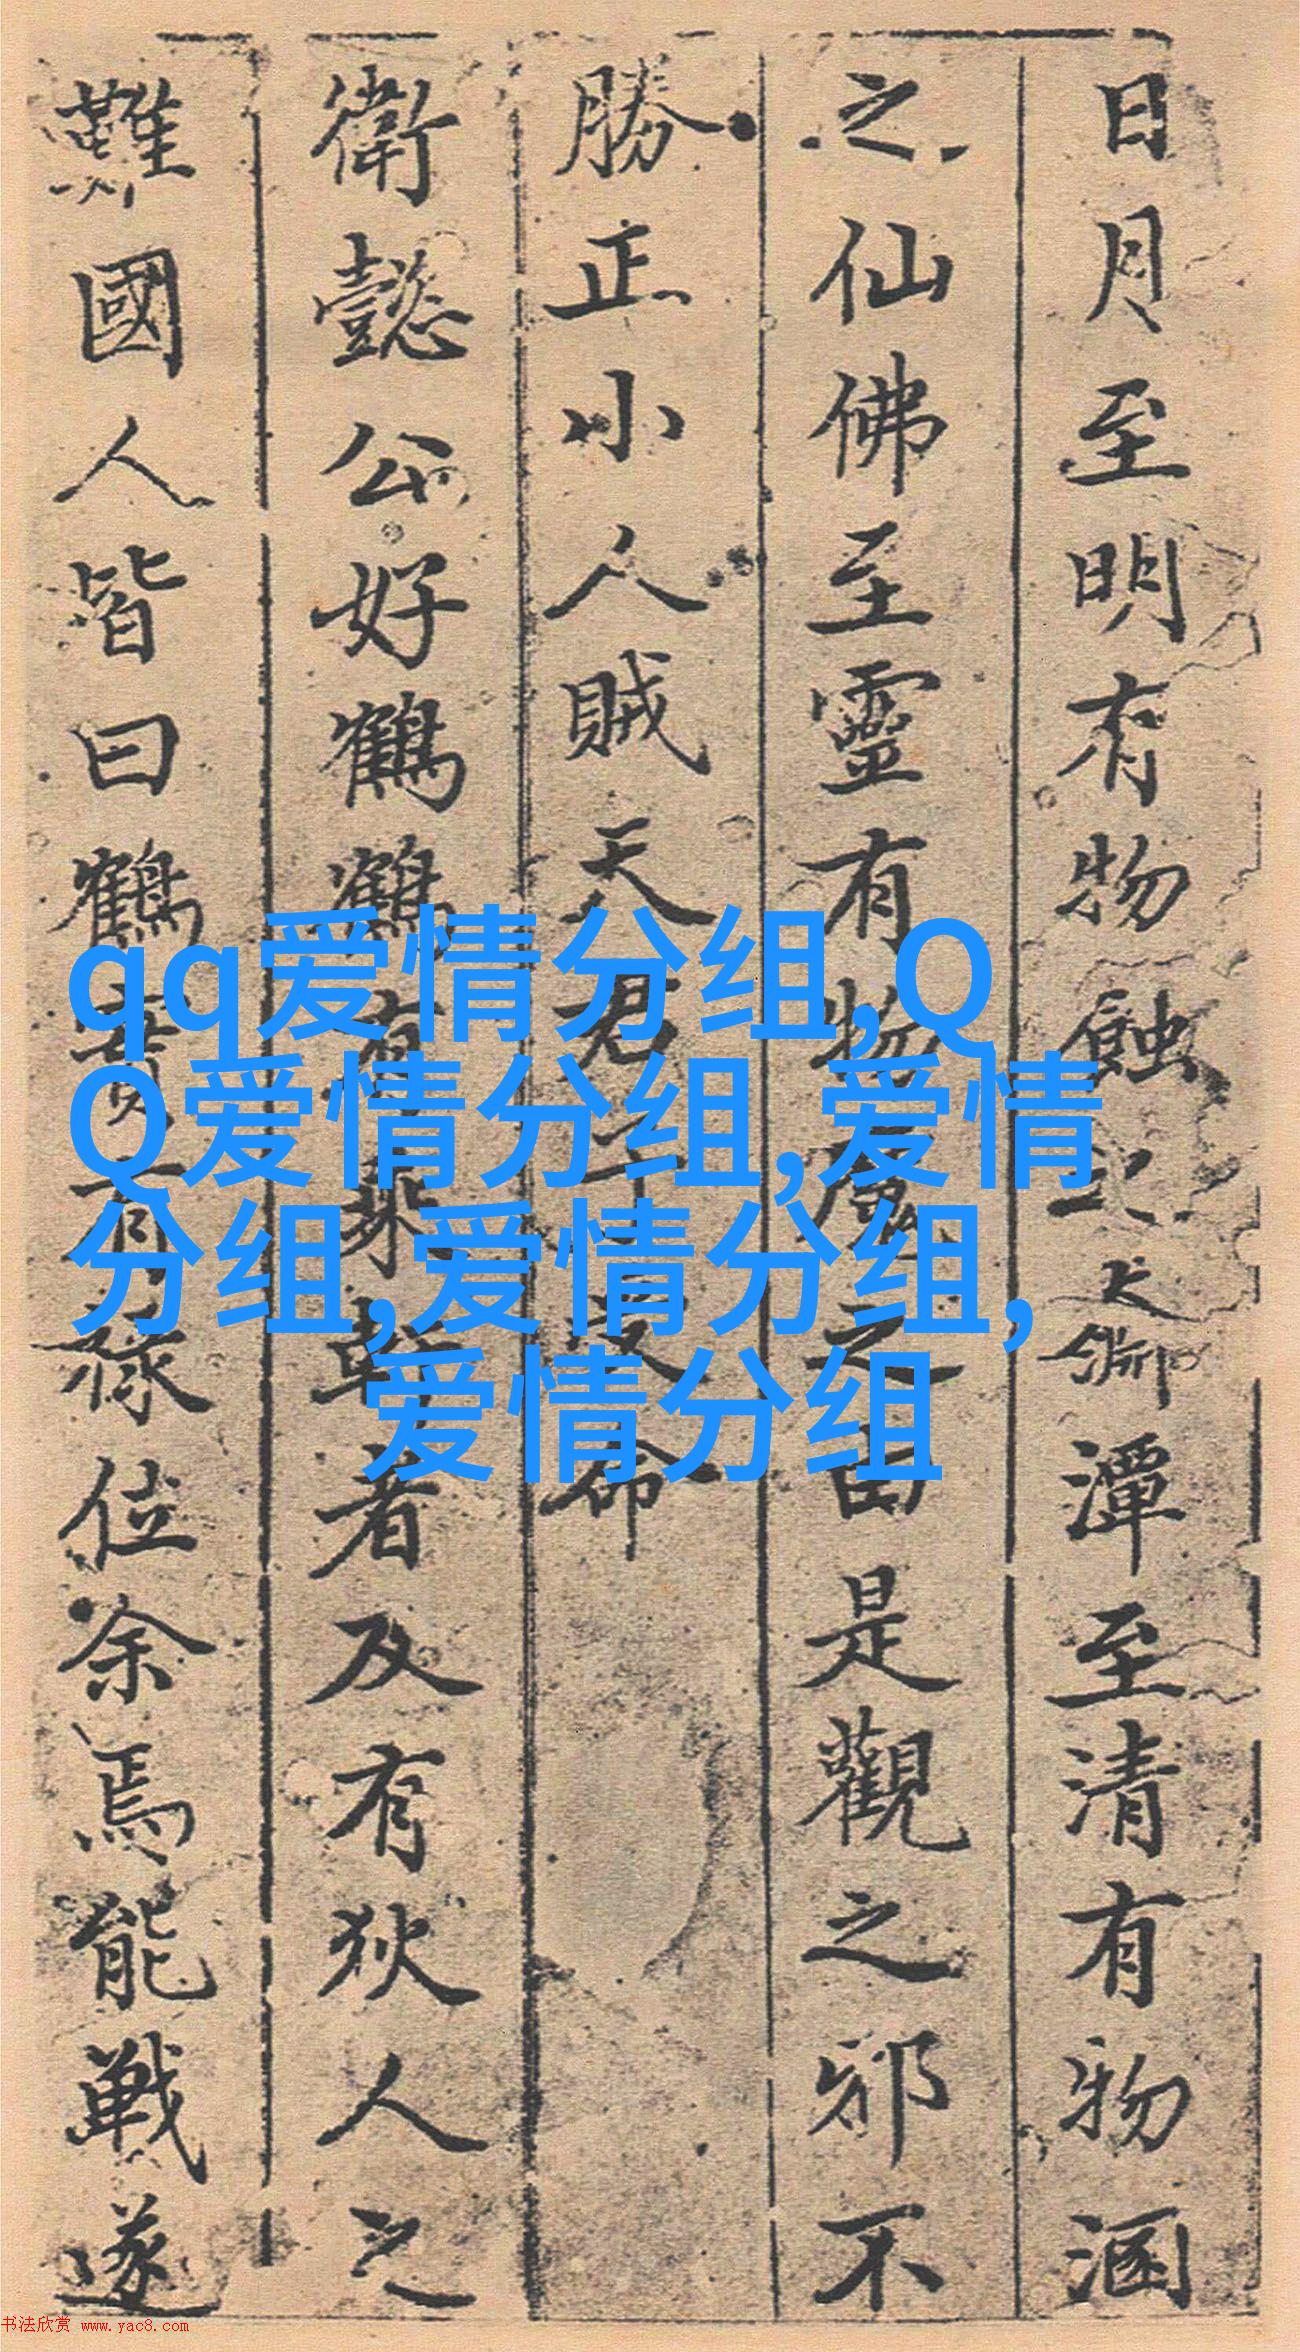 日月至明有物蝕之大衛潭至清有物溷
之仙佛至靈有物魔之由是觀之邪不
勝正小人賊天君命
衛懿公好鶴鶴有乘軒者及有狄人之
難國人皆曰鶴實有祿位余焉能戰遂
qq爱情分组,Q
Q爱情分组,爱情
分组,爱情分组,
爱情分组
书法欣赏 www.yac8.com